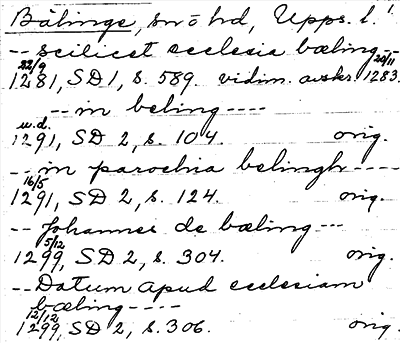 Bälinge, sn o hd, Upps. l. 1
-- scilicet ecclesia bæling --
22/9 20/11
1281, SD 1, s. 589. vidim. avskr. 1283.
-- in beling ----
u.d.
1291, SD 2, s. 104. orig.
-- in parochia belingh ----
16/5
1291, SD 2, s. 124. orig.
-- Johannes de bæling ---
5/12
1299, SD 2, s. 304. orig.
-- Datum apud ecclesiam
bæling ----
12/12
1299, SD 2, s. 306. orig.